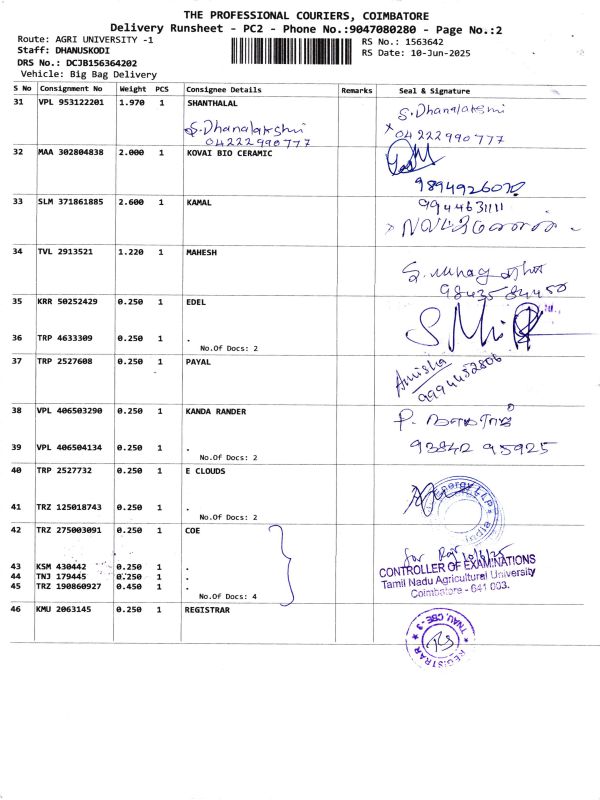 THE PROFESSIONAL COURIERS, COIMBATORE
Delivery Runsheet - PC2 - Phone No.:9047080280 - Page No.:2
Route: AGRI UNIVERSITY -1 RS No.: 1563642
Staff: DHANUSKODI RS Date: 10-Jun-2025
DRS No.: DCJB156364202
Vehicle: Big Bag Delivery
S No Consignment No Weight PCS Consignee Details Remarks Seal & Signature
31 VPL 953122201 1.970 1 SHANTHALAL S.Dhanalakshmi
S.Dhanalakshmi
04222990777 04222990777
32 MAA 302804838 2.000 1 KOVAI BIO CERAMIC
9894926070
33 SLM 371861885 2.600 1 KAMAL 9944631111
34 TVL 2913521 1.220 1 MAHESH
9843584450
35 KRR 50252429 0.250 1 EDEL
36 TRP 4633309 0.250 1 .
No.Of Docs: 2
37 TRP 2527608 0.250 1 PAYAL Amisha
9994452806
38 VPL 406503290 0.250 1 KANDA RANDER
39 VPL 406504134 0.250 1 . 93842 95925
No.Of Docs: 2
40 TRP 2527732 0.250 1 E CLOUDS
Energy LLP
41 TRZ 125018743 0.250 1 .
No.Of Docs: 2
42 TRZ 275003091 0.250 1 COE
for 10/6/25
43 KSM 430442 0.250 1 . CONTROLLER OF EXAMINATIONS
44 TNJ 179445 0.250 1 . Tamil Nadu Agricultural University
45 TRZ 190860927 0.450 1 . Coimbatore - 641 003.
No.Of Docs: 4
46 KMU 2063145 0.250 1 REGISTRAR
TNAU, CBE - 3
REGISTRAR